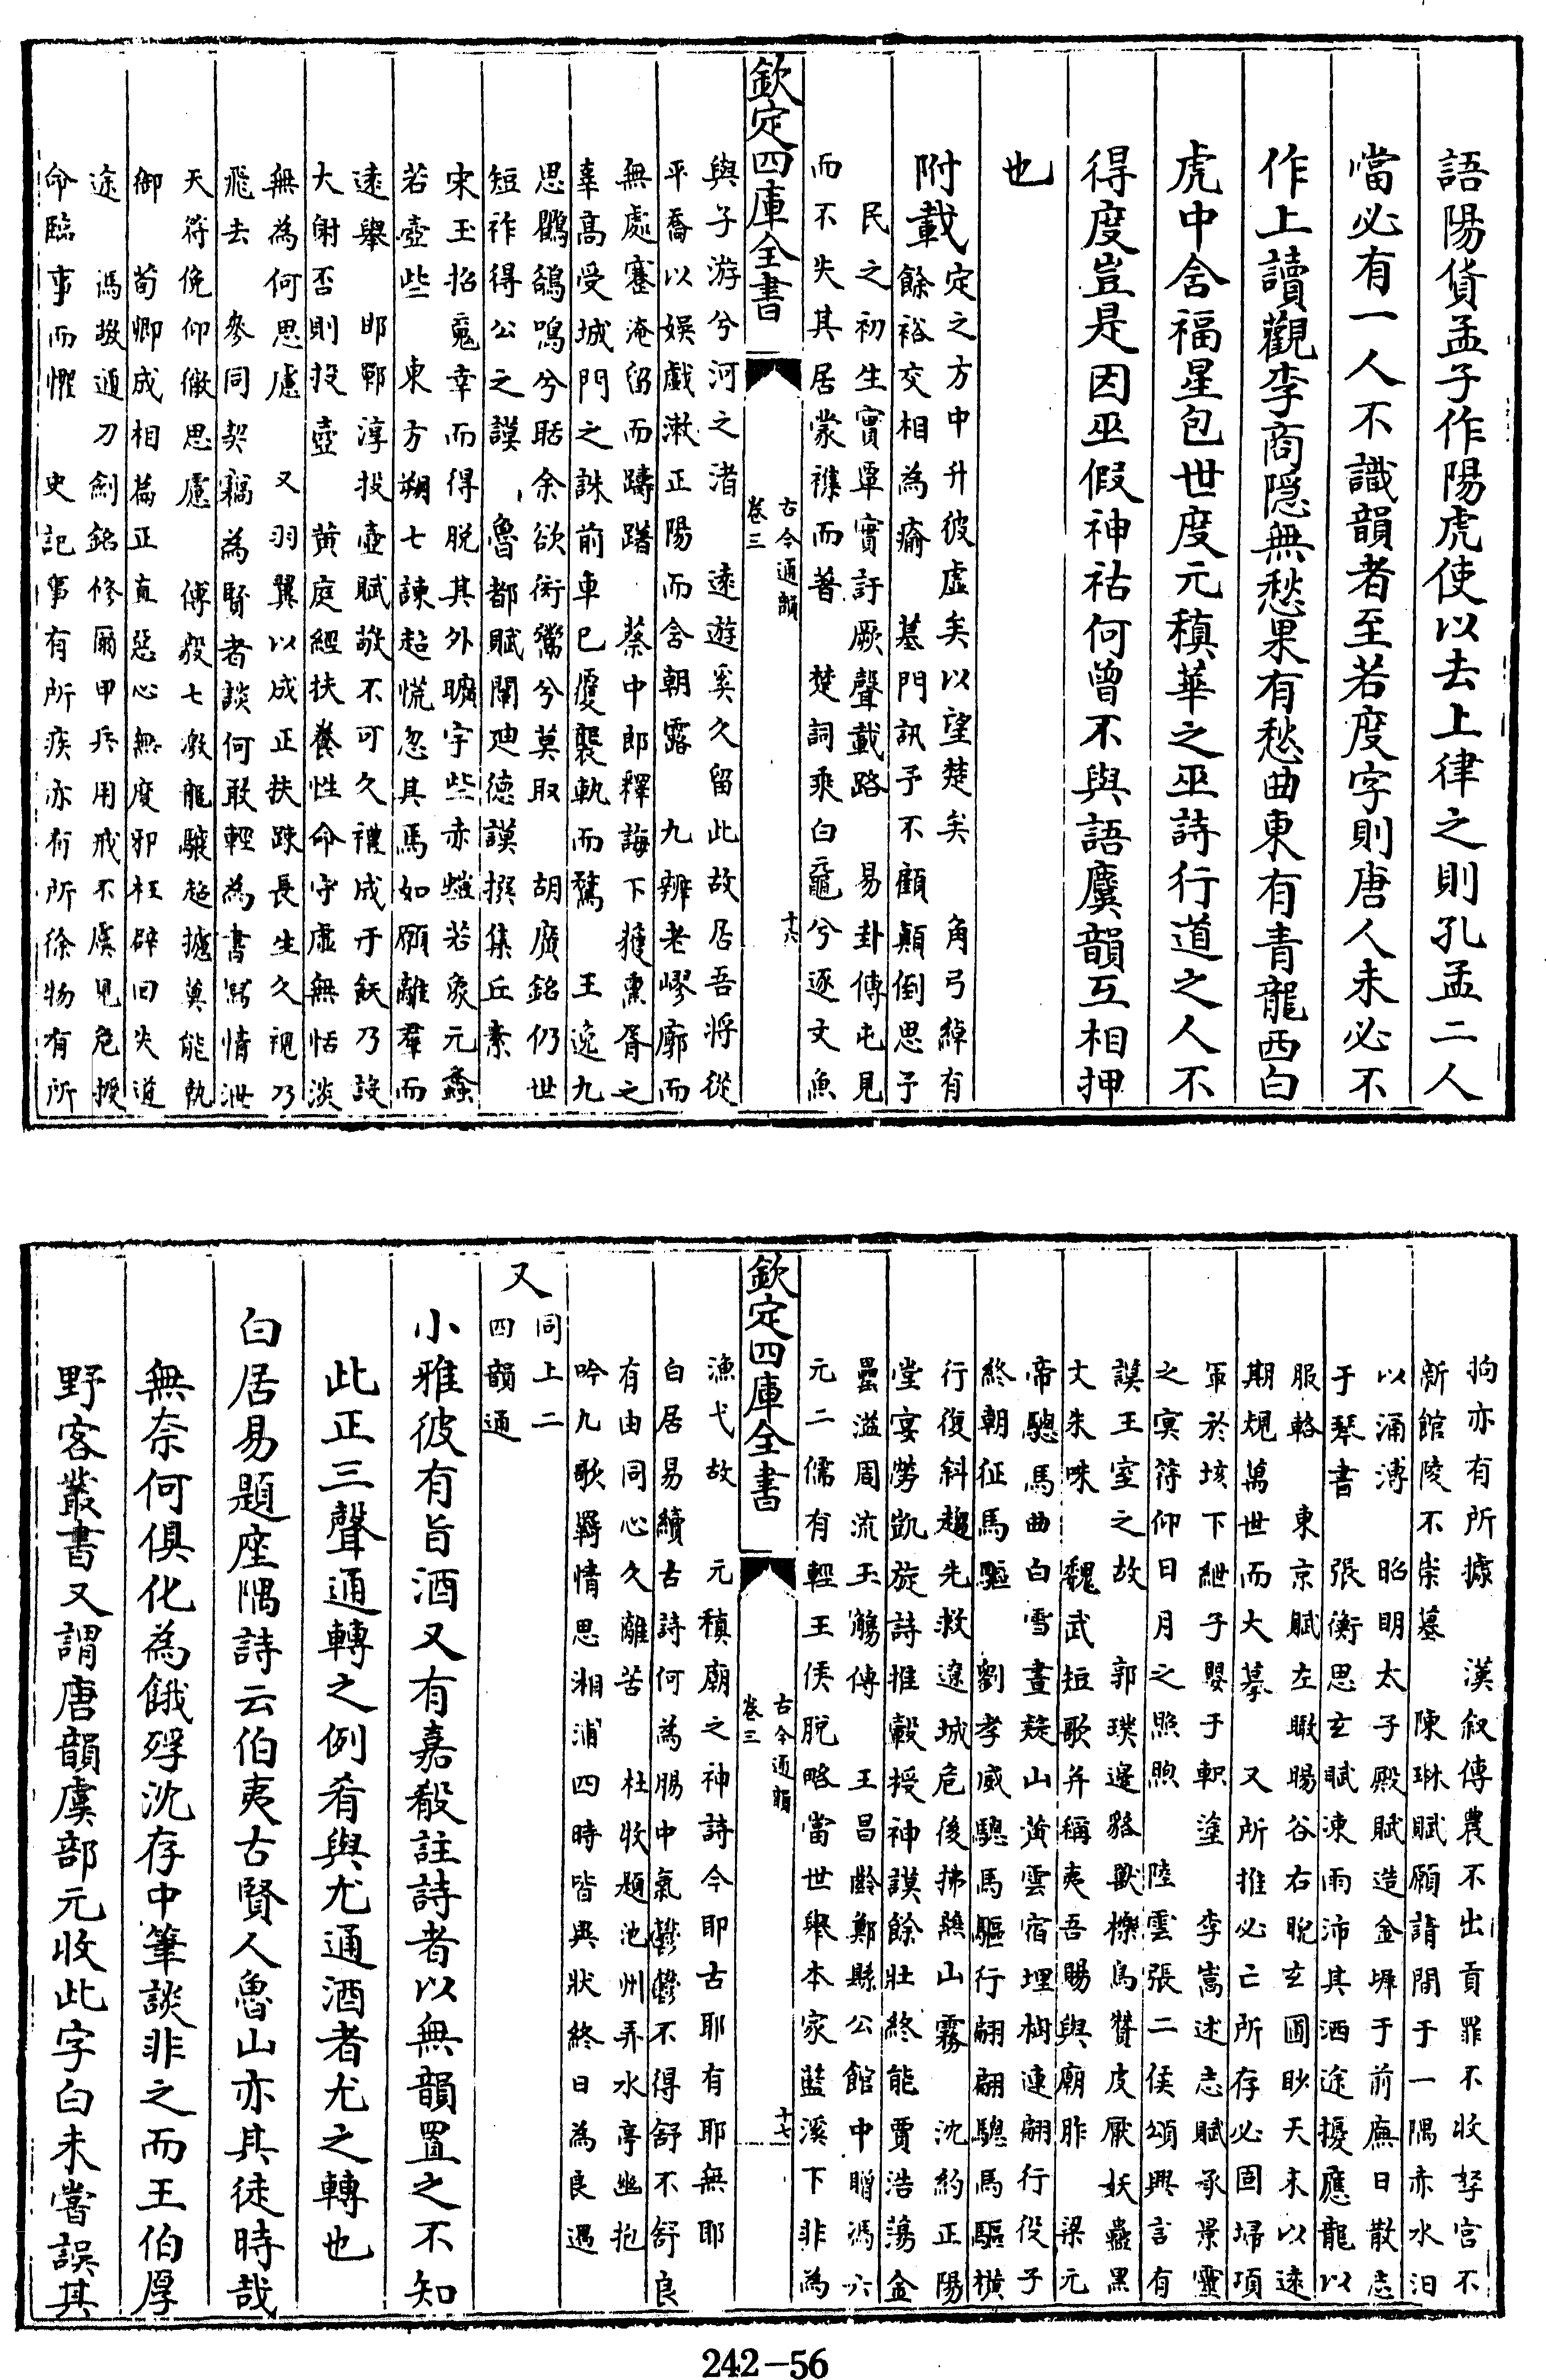 語陽貨孟子作陽虎使以去上律之則孔孟二人
當必有一人不識韻者至若度字則唐人未必不
作上讀觀李商隱無愁果有愁曲東有青龍西白
虎中舍福星包世度元稹華之巫詩行道之人不
得度豈是因巫假神祜何曾不與語麌韻互相押
也
附載
定之方中升彼虛矣以望楚矣　角弓綽有
餘裕交相為瘉　墓門訊予不顧顛倒思予
民之初生實覃實訏厥聲載路　易卦傳屯見
而不失其居蒙襍而著　楚詞乘白黿兮逐文魚
欽定四庫全書
古今通韻
卷三
十六
與子游兮河之渚　遠遊奚久留此故居吾將從
平喬以娛戲漱正陽而含朝露　九辨老嵺廓而
無處蹇淹留而躊躇　蔡中郎釋誨下獲熏胥之
辜高受城門之誅前車已覆襲軌而騖　王逸九
思鸜鵒鳴兮聒余欲衒鬻兮莫取　胡廣銘仍世
短祚得公之謨　魯都賦闡迪德謨撰集丘索
宋玉招䰟幸而得脫其外曠宇些赤螘若象元蠭
若壺些　東方朔七諫超慌忽其焉如願離羣而
遠舉　邯鄲淳投壺賦敬不可久禮成于飫乃設
大射否則投壺　黄庭經扶養性命守虛無恬淡
無為何思慮　又羽翼以成正扶踈長生久視乃
飛去　參同契竊為賢者談何敢輕為書寫情泄
天符俛仰徹思慮　傅毅七激龍驤超攄莫能執
御　荀卿成相篇正直惡心無度邪枉辟回失道
途　馮敬通刀劍銘修爾甲兵用戒不虞見危授
命臨事而懼　史記事有所疾亦有所徐物有所
拘亦有所據　漢叙傳農不出貢罪不收孥宫不
新館陵不崇墓　陳琳賦願請間于一隅亦水汨
以涌溥　昭明太子殿賦造金墀于前廡日散志
于琴書　張衡思玄賦涷雨沛其洒途擾應龍以
服輅　東京賦左瞰暘谷右睨玄圃眇天末以遠
期規萬世而大摹　又所推必亡所存必固埽項
軍於垓下紲子嬰于軹塗　李嵩述志賦承景靈
之冥符仰日月之照煦　陸雲張二侯頌興言有
謨王室之故　郭璞邊駱獸櫟鳥贊皮厭妖蠱黑
文朱味　魏武短歌并稱夷吾賜與廟胙　梁元
帝驄馬曲白雪晝凝山黃雲宿埋樹連翩行役子
終朝征馬驅　劉孝威驄馬驅行翩翩驄馬驅横
行復斜趨先救遼城危後拂燕山霧　沈約正陽
堂宴勞凱旋詩推轂授神謨餘壯終能賈浩蕩金
罍溢周流玉觴傳　王昌齡鄭縣公館中贈馮六
元二儒有輕王侯脫略當世舉本家藍溪下非為
欽定四庫全書
古今通韻
卷三
十七
漁弋故　元稹廟之神詩今耶古耶有耶無耶
白居易續古詩何為腸中氣鬱鬱不得舒不舒良
有由同心久離苦　杜牧題池州弄水亭幽抱
吟九歌羈情思湘浦四時皆異狀終日為良遇
又
同上二
四韻通
小雅彼有旨酒又有嘉殽註詩者以無韻置之不知
此正三聲通轉之例肴與尤通酒者尤之轉也
白居易題座隅詩云伯夷古賢人魯山亦其徒時哉
無奈何俱化為餓殍沈存中筆談非之而王伯厚
野客叢書又謂唐韻虞部元收此字白未嘗誤其
242-56